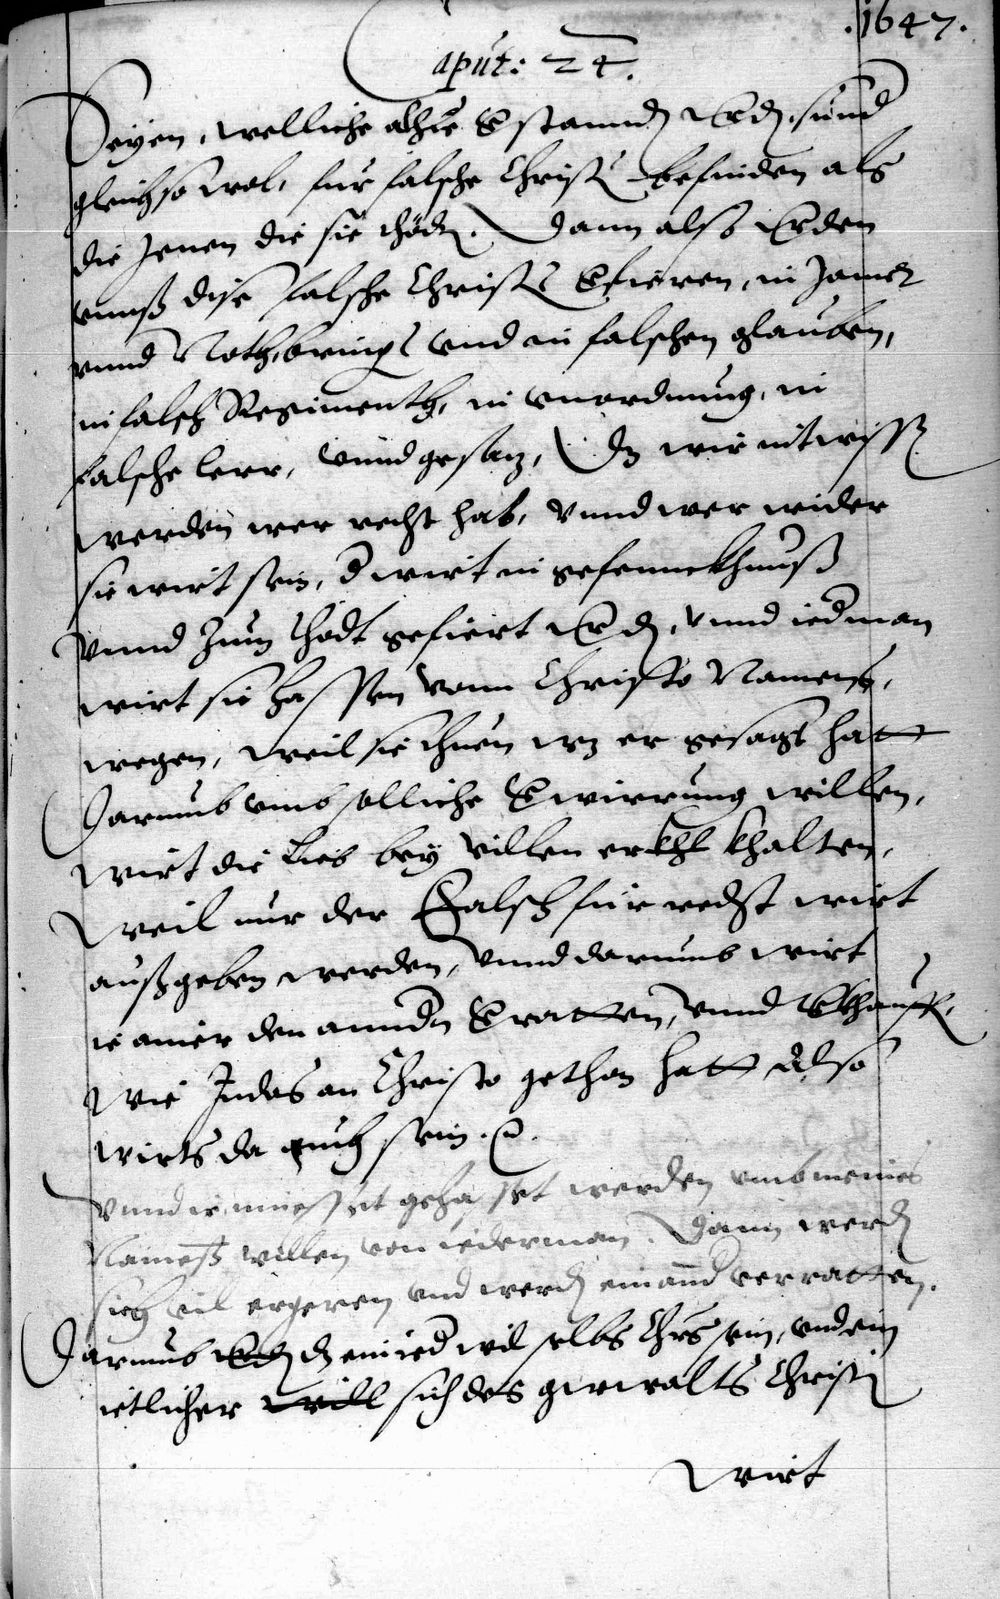 .1647.
Caput: 24.
Seyen, welliche alhie verstannden werden, sunnd
gleichso wol, für falsche Christi befinden als
die Jenen die sie thödten. Dann also werden
vnnß dise falsche Christi verfieren, in Jamer
vnnd Noth, bringen vnd in falschen glauben,
in falsch Regimenth, in vnordnung, in
falsche lerr, vnnd gesatz, Das wir nit wissen
werden wer recht hab, vnnd wer wider
sie wirt sein, der wirt in gefennckhnuß
vnnd zum Thodt gefiert werden, vnnd iederman
wirt sie hassen vonn Christo Namens,
wegen, weil sie thuen was er gesagt hatt
Darumb vmb solliche verwirrung willen,
wirt die Lieb bey villen erkhalten,
weil nur der Falsch für recht wirt
außgeben werden, vnnd darumb wirt
ie ainer den anndern verratten, vnnd verkhauffen,
wie Judas an Christo gethon hatt Also
wirts da auch sein.
Vnnd ir müesset gehasset werden vmb meines
Nameß willen von iederman. Dann werden
sich vil ergeren vnd werden einannder verratten.
Darumb das ein ieder wil selbs Christus sein, vnd ein
ietlicher will sich des gewalts Christi
wirt